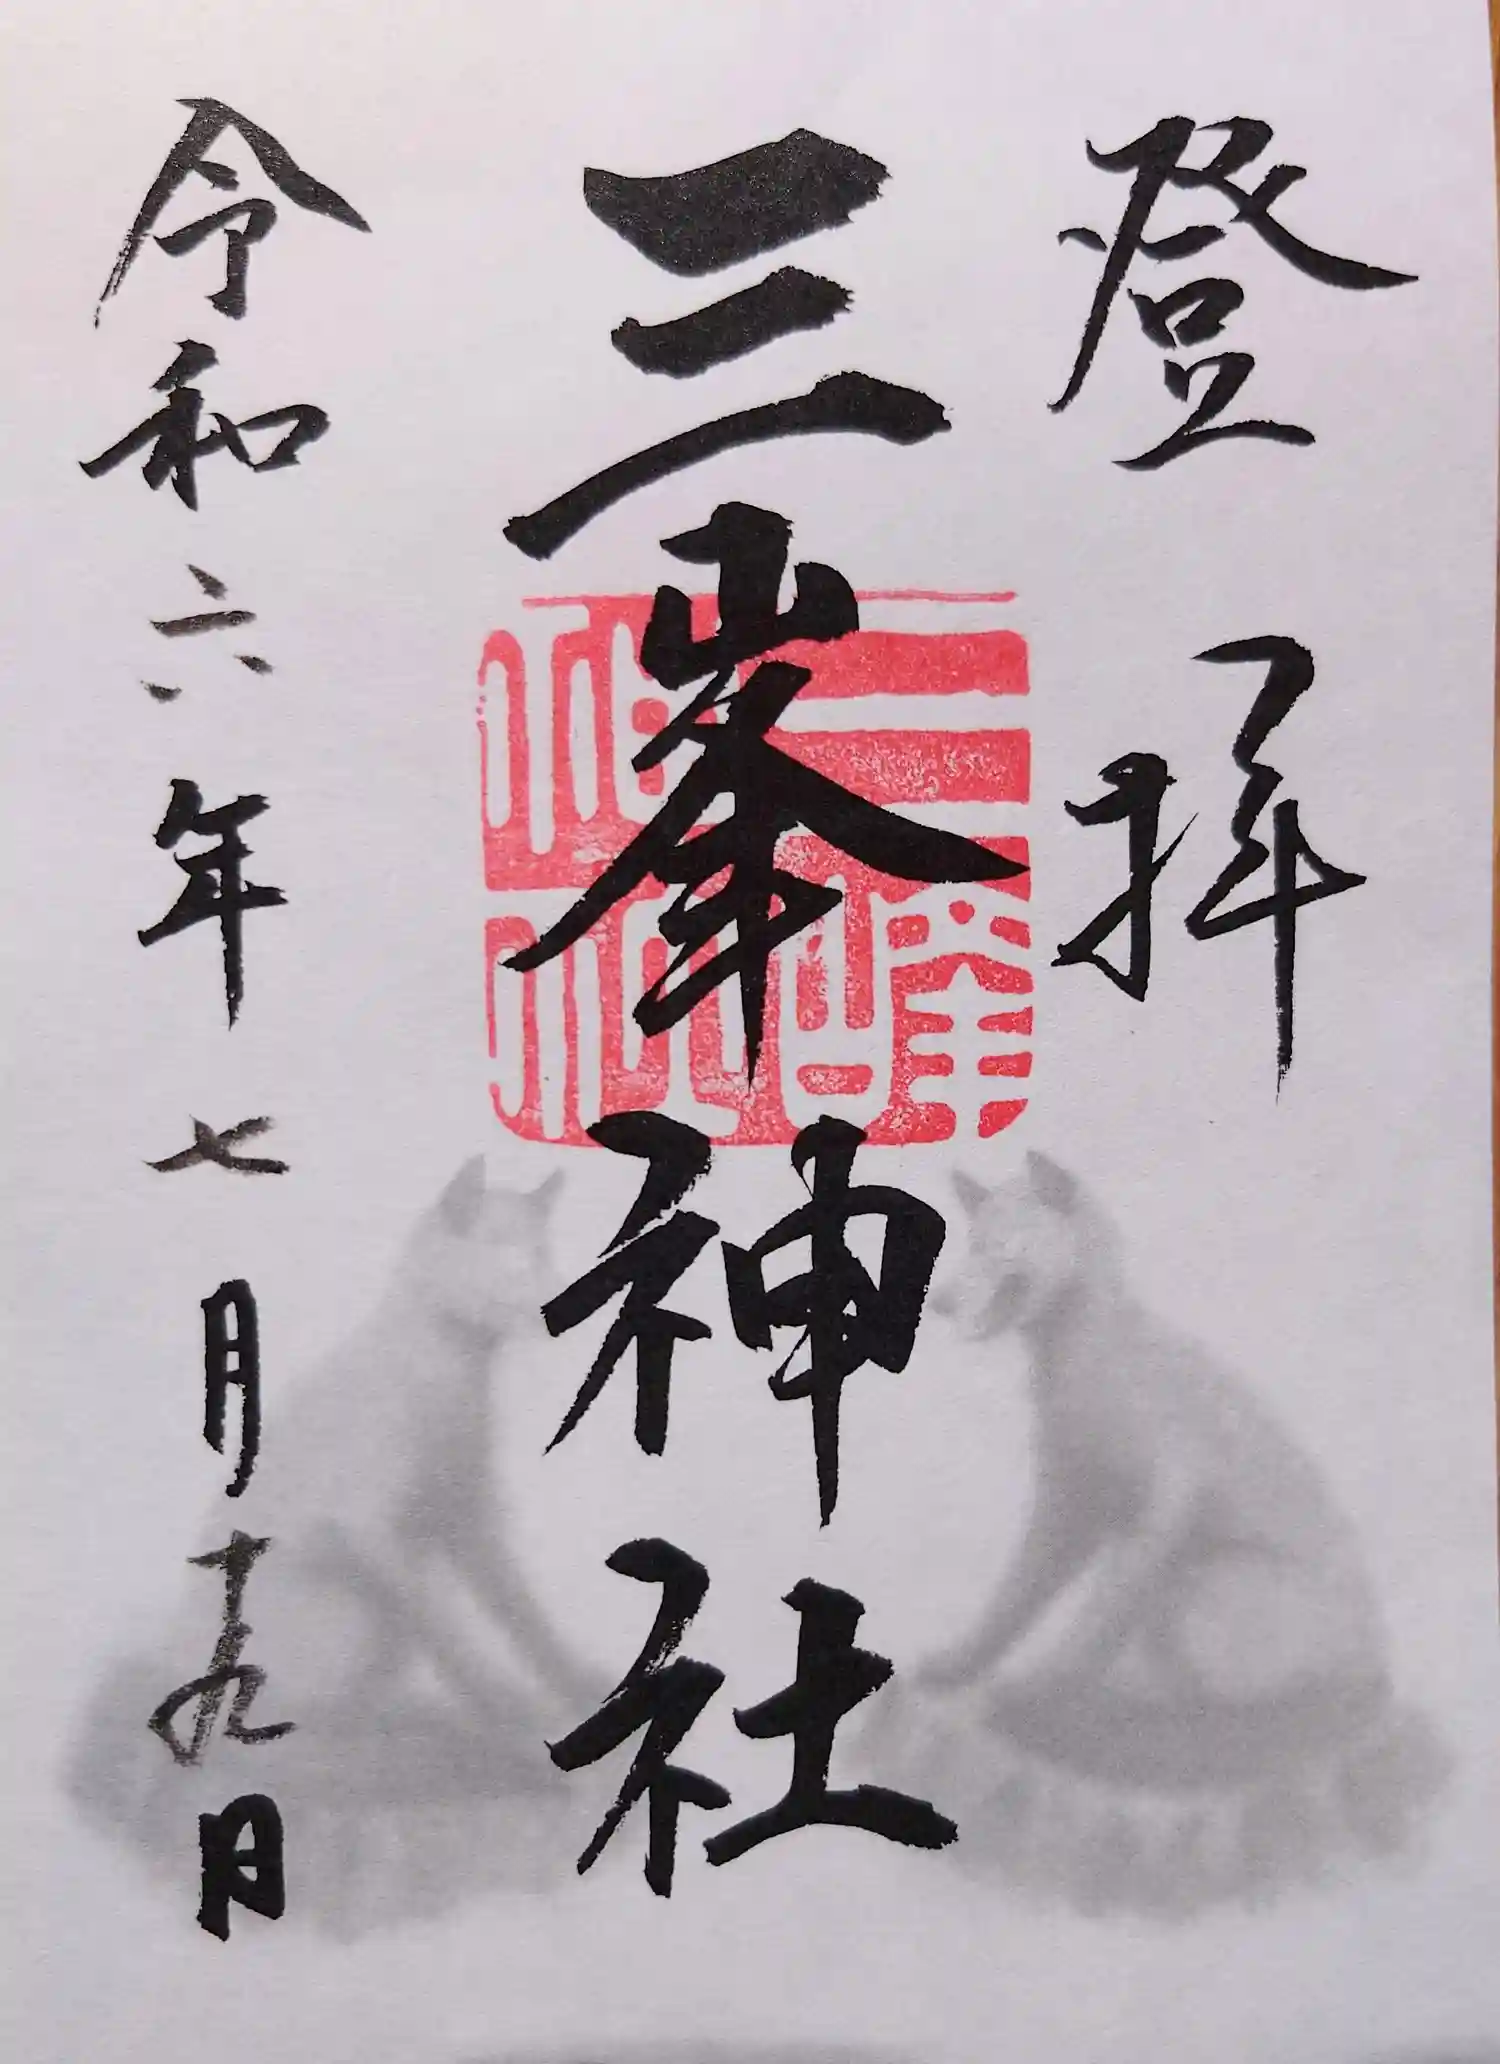 登拝
三峯神社
三峰神社
令和六年七月十九日